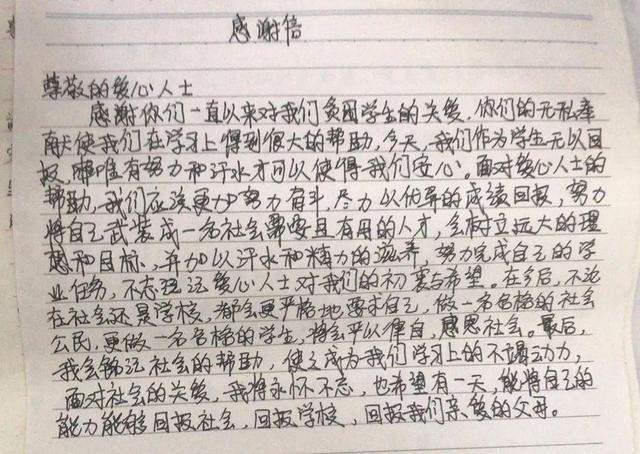 感谢信
尊敬的爱心人士
感谢你们一直以来对我们贫困学生的关爱，你们的无私奉
献使我们在学习上得到很大的帮助，今天，我们作为学生无以回
报，唯有努力和汗水才可以使得我们安心。面对爱心人士的
帮助，我们应该更加努力奋斗，尽力以优异的成绩回报，努力
将自己武装成一名社会需要且有用的人才，会树立远大的理
想和目标，并加以汗水和精力的滋养，努力完成自己的学
业任务，不忘爱心人士对我们的初衷与希望。在今后，不论
在社会还是学校，都会更严格地要求自己，做一名合格的社会
公民，更做一名合格的学生，将会严以律自，感恩社会。最后，
我会铭记社会的帮助，使之成为我们学习上的不竭动力，
面对社会的关爱，我将永怀不忘，也希望有一天，能将自己的
能力能够回报社会，回报学校，回报我们亲爱的父母。